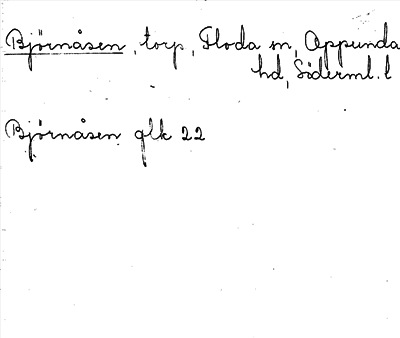 Björnåsen, torp, Floda sn, Oppunda
hd, Söderml. l
Björnåsen glk 22